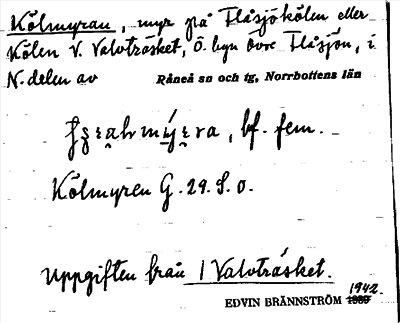 Kölmyran, myr på Flåsjökölen eller
Kölen V. Valvträsket, Ö. byn Övre Flåsjön, i
N. delen av Råneå sn och tg, Norrbottens län
bf. fem.
Kölmyren G. 29. S. o.
Uppgiften från 1 Valvträsket.
1942.
EDVIN BRÄNNSTRÖM 1939